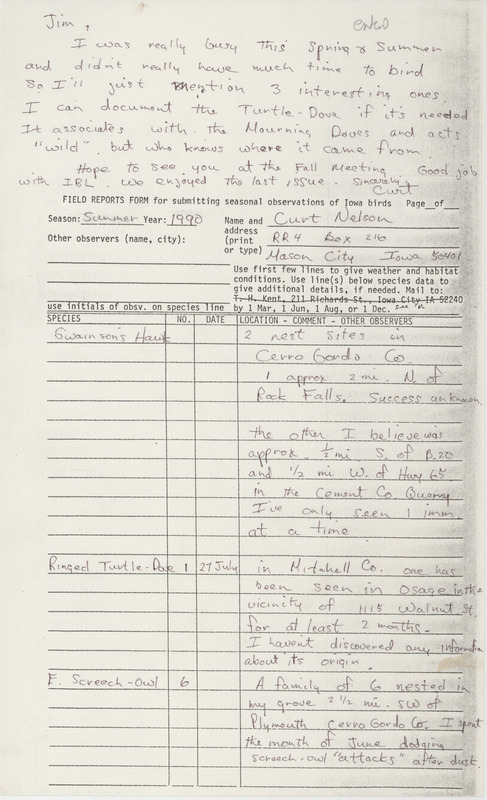 Jim,
I was really busy this Spring & Summer
and didn't really have much time to bird
So I'll just mention 3 interesting ones.
I can document the Turtle-Dove if it's needed
It associates with the Mourning Doves and acts
"wild" but who knows where it came from.
Hope to see you at the Fall Meeting. Good job
with IBL. We enjoyed the last issue. Sincerely,
Curt
FIELD REPORTS FORM for submitting seasonal observations of Iowa birds Page__of__
Season: Summer Year: 1990
Other observers (name, city):
Name and address (print or type)
Curt Nelson
RR4 Box 216
Mason City Iowa 50401
Use first few lines to give weather and habitat
conditions. Use line(s) below species data to
give additional details, if needed. Mail to:
T. H. Kent, 211 Richards St., Iowa City IA 52240
by 1 Mar, 1 Jun, 1 Aug, or 1 Dec.
use initials of obsv. on species line
SPECIES NO. DATE LOCATION - COMMENT - OTHER OBSERVERS
Swainson's Hawk 2 nest sites in
Cerro Gordo Co.
1 approx 2 mi. N. of
Rock Falls. Success unknown
the other I believe was
approx. 1/2 mi. S. of B.20
and 1/2 mi W. of Hwy 65
in the Cement Co. Quarry
I've only seen 1 imm.
at a time
Ringed Turtle-Dove 1 27 July in Mitchell Co. one has
been seen in Osage in the
vicinity of 1115 Walnut St.
for at least 2 months.
I haven't discovered any information
about its origin.
E. Screech-Owl 6 A family of 6 nested in
my grove 2 1/2 mi. SW of
Plymouth Cerro Gordo Co. I spent
the month of June dodging
screech-owl "attacks" after dusk.